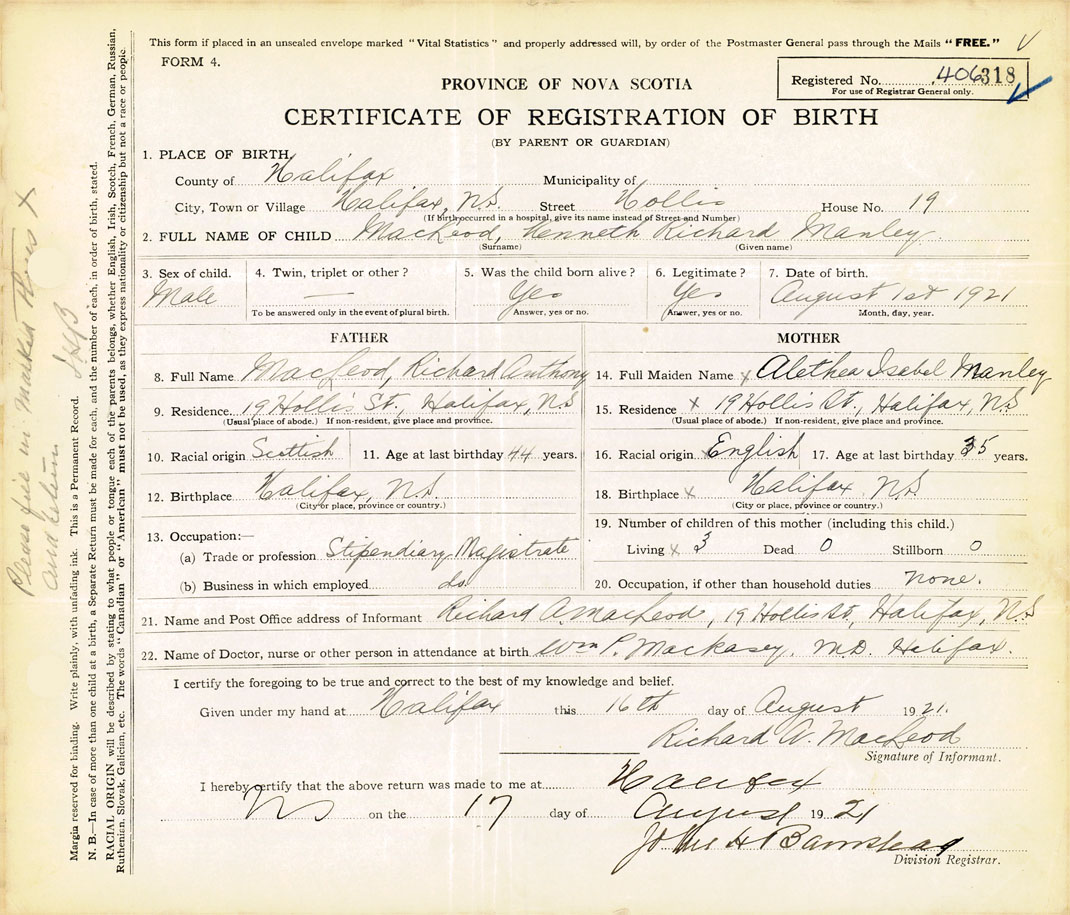 This form if placed in an unsealed envelope marked "Vital Statistics" and properly addressed will, by order of the Postmaster General pass through the Mails "FREE."
FORM 4.
PROVINCE OF NOVA SCOTIA
Registered No. 406318
For use of Registrar General only.
CERTIFICATE OF REGISTRATION OF BIRTH
(BY PARENT OR GUARDIAN)
1. PLACE OF BIRTH.
County of Halifax Municipality of
City, Town or Village Halifax, N.S. Street Hollis House No. 19
(If birth occurred in a hospital, give its name instead of Street and Number)
2. FULL NAME OF CHILD MacLeod, Kenneth Richard Manley
(Surname) (Given name)
3. Sex of child. 4. Twin, triplet or other? 5. Was the child born alive? 6. Legitimate? 7. Date of birth.
Male — Yes Yes August 1st 1921
To be answered only in the event of plural birth. Answer, yes or no. Answer, yes or no. Month, day, year.
FATHER
8. Full Name MacLeod, Richard Anthony
9. Residence 19 Hollis St., Halifax, N.S
(Usual place of abode.) If non-resident, give place and province.
10. Racial origin Scottish 11. Age at last birthday 44 years.
12. Birthplace Halifax, N.S.
(City or place, province or country.)
13. Occupation:—
(a) Trade or profession Stipendiary Magistrate
(b) Business in which employed do
MOTHER
14. Full Maiden Name x Alethea Isabel Manley
15. Residence x 19 Hollis St., Halifax, N.S
(Usual place of abode.) If non-resident, give place and province.
16. Racial origin x English 17. Age at last birthday 35 years.
18. Birthplace x Halifax N.S
(City or place, province or country.)
19. Number of children of this mother (including this child.)
Living x 3 Dead 0 Stillborn 0
20. Occupation, if other than household duties none.
21. Name and Post Office address of Informant Richard A. MacLeod, 19 Hollis St, Halifax, N.S
22. Name of Doctor, nurse or other person in attendance at birth Wm P. Mackasey. M.D. Halifax.
I certify the foregoing to be true and correct to the best of my knowledge and belief.
Given under my hand at Halifax this 16th day of August 1921.
Richard A. MacLeod
Signature of Informant.
I hereby certify that the above return was made to me at Halifax
NS on the 17 day of August 1921
John H Barnstead
Division Registrar.
Please fill in marked thus X
and return
Margin reserved for binding. Write plainly, with unfading ink. This is a Permanent Record.
N. B.—In case of more than one child at a birth, a Separate Return must be made for each, and the number of each, in order of birth, stated.
RACIAL ORIGIN will be described by stating to what people or tongue each of the parents belongs, whether English, Irish, Scotch, French, German, Russian,
Ruthenian, Slovak, Galician, etc. The words "Canadian" or "American" must not be used, as they express nationality or citizenship but not a race or people.